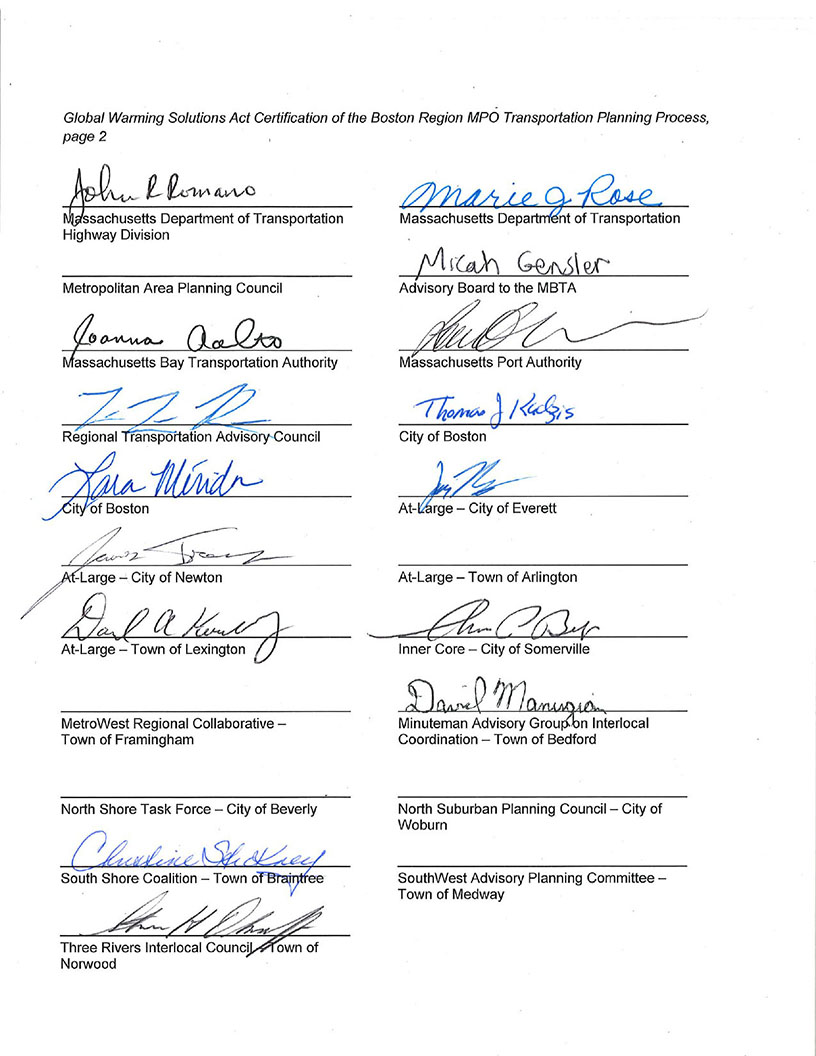 Global Warming Solutions Act Certification of the Boston Region MPO Transportation Planning Process,
page 2
John R Romano
Massachusetts Department of Transportation
Highway Division
Marie J Rose
Massachusetts Department of Transportation
Metropolitan Area Planning Council
Micah Gensler
Advisory Board to the MBTA
Joanna Aalto
Massachusetts Bay Transportation Authority
Massachusetts Port Authority
Regional Transportation Advisory Council
Thomas J Kadzis
City of Boston
Lara Mérida
City of Boston
At-Large – City of Everett
At-Large – City of Newton
At-Large – Town of Arlington
At-Large – Town of Lexington
Inner Core – City of Somerville
MetroWest Regional Collaborative –
Town of Framingham
David Manugian
Minuteman Advisory Group on Interlocal
Coordination – Town of Bedford
North Shore Task Force – City of Beverly
North Suburban Planning Council – City of
Woburn
Christine Stickney
South Shore Coalition – Town of Braintree
SouthWest Advisory Planning Committee –
Town of Medway
Three Rivers Interlocal Council – Town of
Norwood